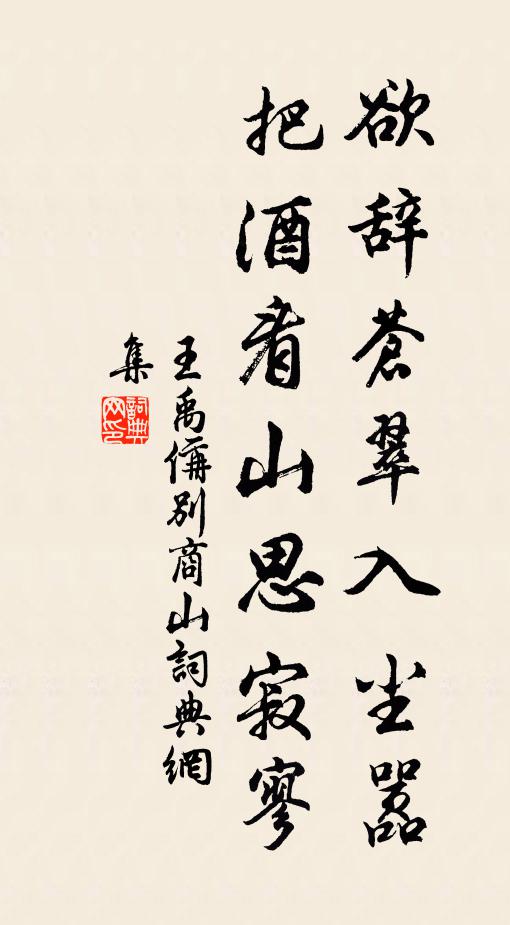 欲辞蒼翠入尘嚣
把酒看山思寂寥
王禹偁別商山詞典網
集
詞典
网印